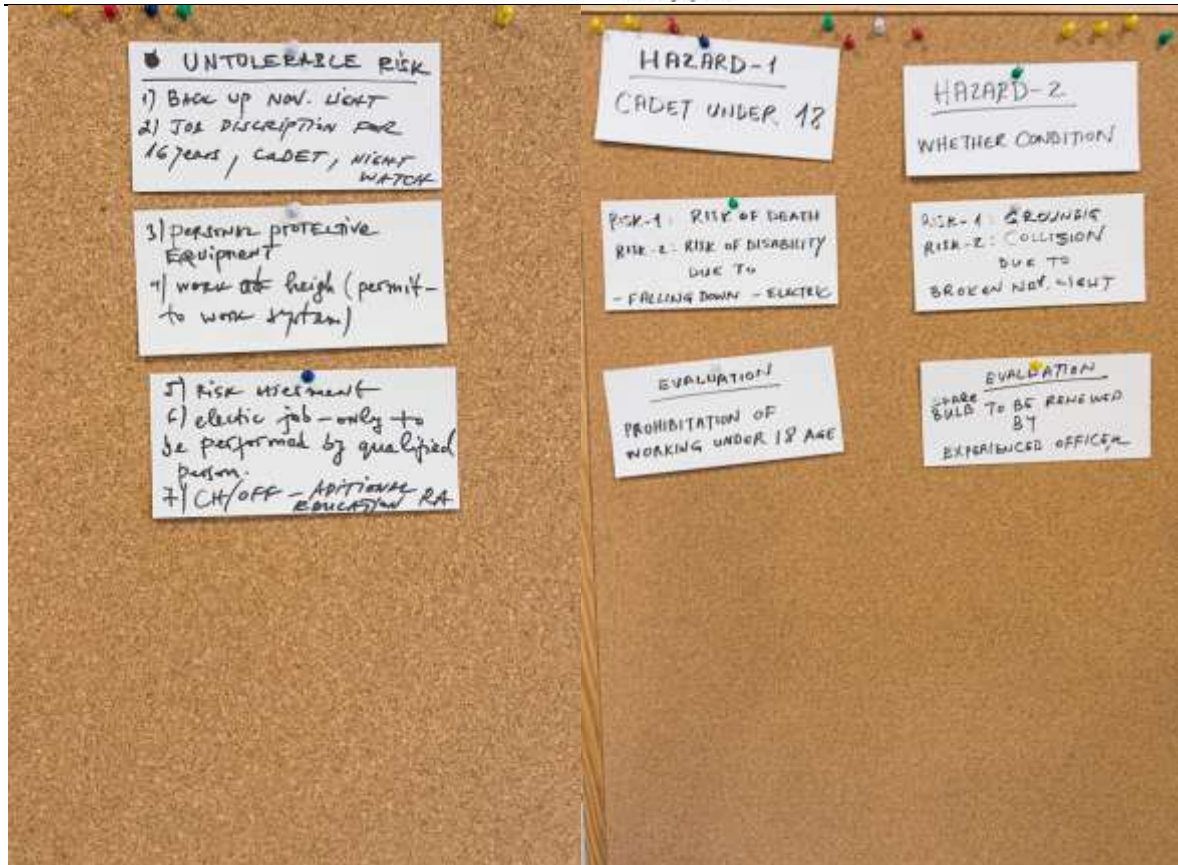 UNTOLERABLE RISK
1) BACK UP NAV. LIGHT
2) JOB DISCRIPTION FOR
16 years, CADET, NIGHT
WATCH
3) PERSONAL PROTECTIVE
EQUIPMENT
4) WORK at heigh (permit-
to work system)
5) RISK assesment
6) electic job - only to
be performed by qualified
person.
7) CH/OFF - ADITIONAL
EDUCATION RA
HAZARD-1
CADET UNDER 18
RISK-1: RISK OF DEATH
RISK-2: RISK OF DISABILITY
DUE TO
- FALLING DOWN - ELECTRIC
EVALUATION
PROHIBITATION OF
WORKING UNDER 18 AGE
HAZARD-2
WHETHER CONDITION
RISK-1: GROUNDIG
RISK-2: COLLISION
DUE TO
BROKEN NAV. LIGHT
EVALUATION
SPARE
BULB TO BE RENEWED
BY
EXPERIENCED OFFICER